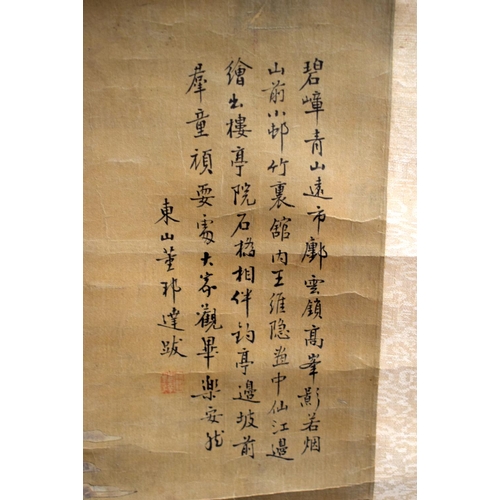 碧嶂青山遠市鄽雲鎖高峯影若烟
山前小邨竹裏舘内王維隐画中仙江邊
繪出樓亭院石橋相伴釣亭邊坡前
羣童頑耍處大家觀畢樂安然
東山董邦達跋